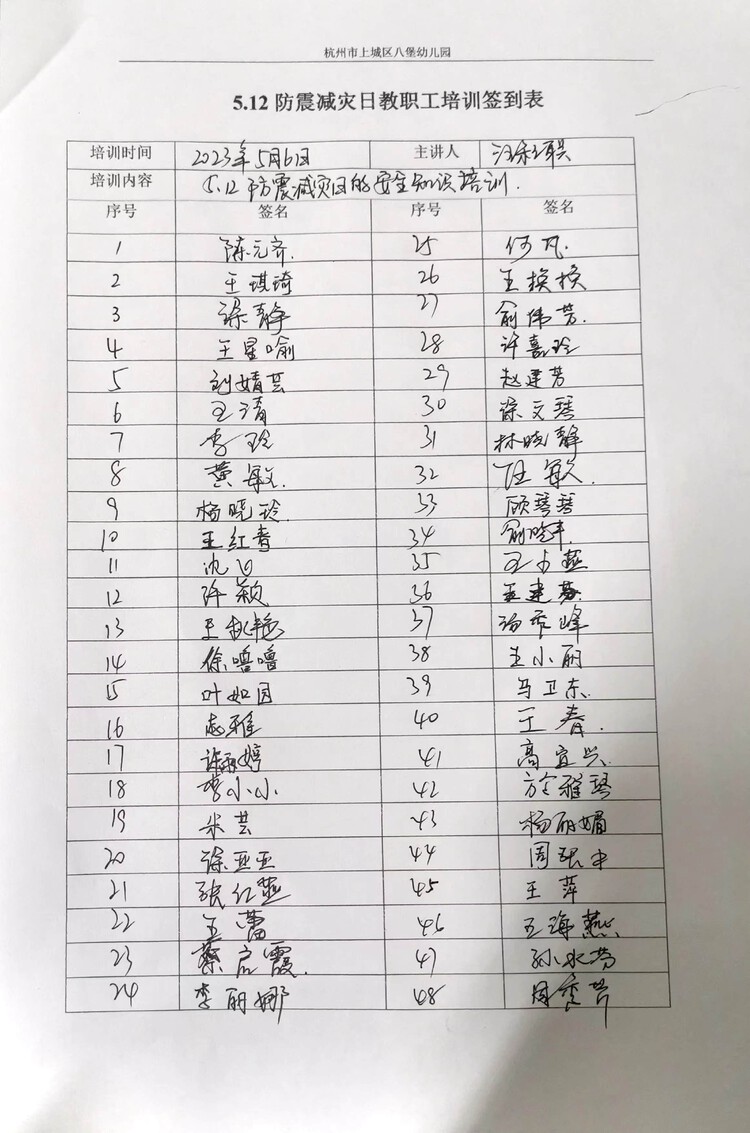 杭州市上城区八堡幼儿园
5.12 防震减灾日教职工培训签到表
培训时间 2023年5月6日 主讲人
培训内容 5.12防震减灾日的安全知识培训.
序号 签名 序号 签名
1 陈元齐. 25 何凡.
2 王琪琦 26 王换换
3 徐静 27 俞伟芳.
4 王星喻 28 许嘉玲
5 刘婧芸 29 赵建芳
6 王清 30 徐文琴
7 李玲 31 林晓静
8 黄敏. 32 任敏.
9 杨晓玲. 33 顾琴琴
10 王红青 34
11 沈 35 王小燕
12 许颖 36 孟建芬
13 王桃艳 37 汤秀峰
14 徐噜噜 38 王小丽
15 叶如园 39 马卫东.
16 雅 40 王春.
17 婷 41 高宜兴.
18 李小小 42 方雅琴
19 米芸 43 杨丽媚
20 徐亚亚 44 周中
21 张红燕 45 王萍
22 王蕾 46 王海燕
23 蔡启霞. 47 孙水芬
24 李丽娜 48 周秀芹